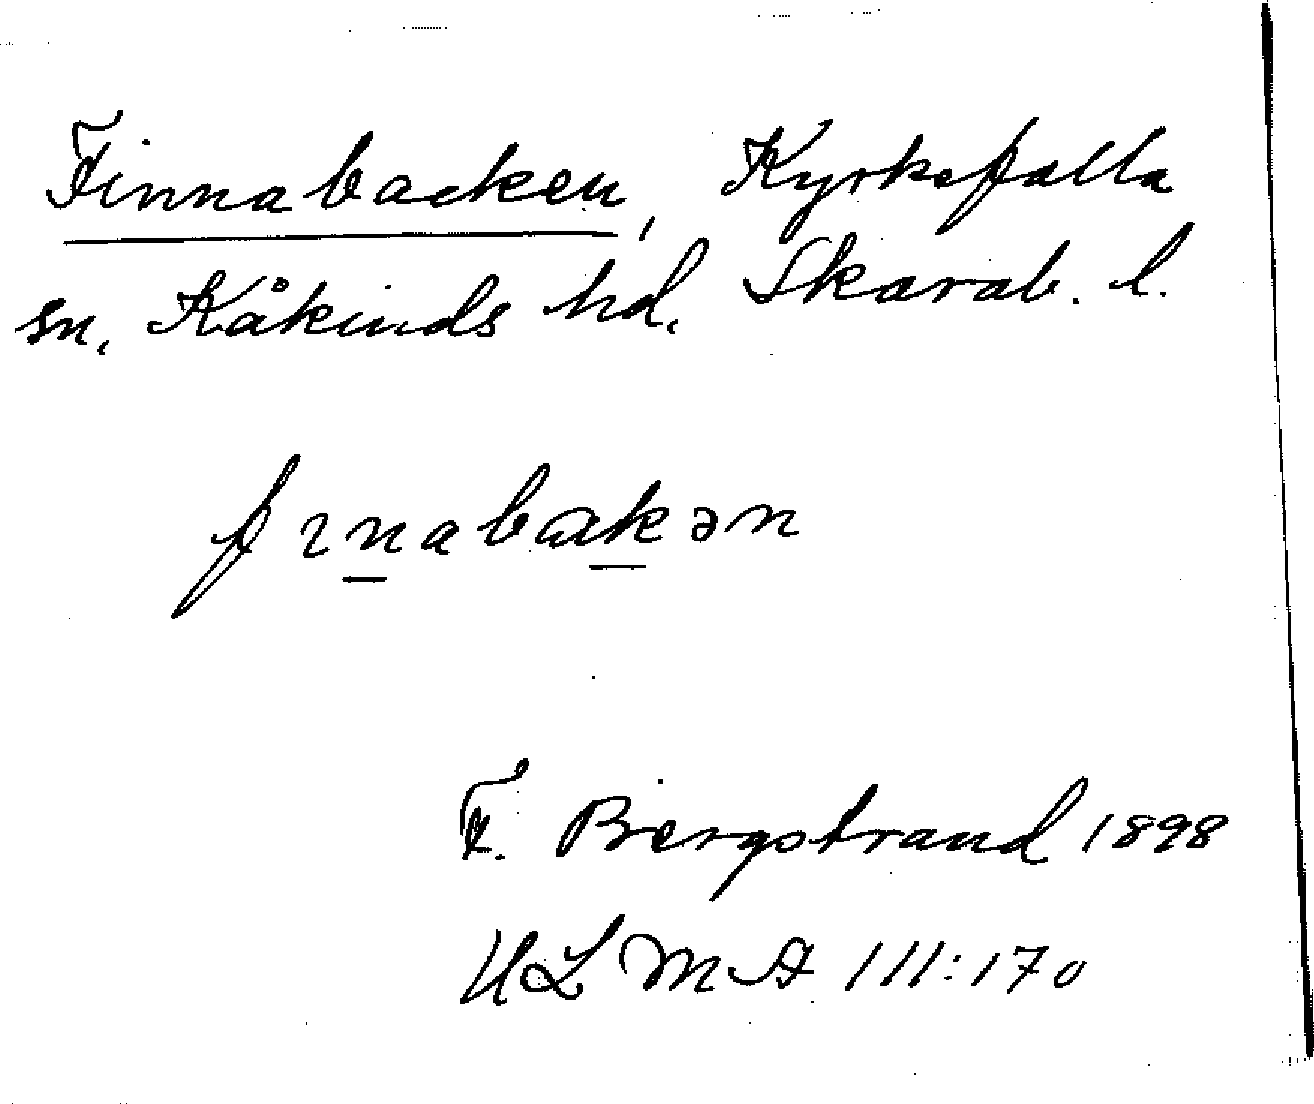 Finnabacken, Kyrkefalla
sn. Kåkinds hd. Skarab. l.
fınabakən
F. Bergstrand 1898
ULMA 111:170